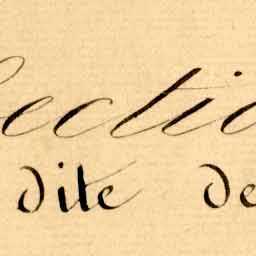 Sectio
dite de